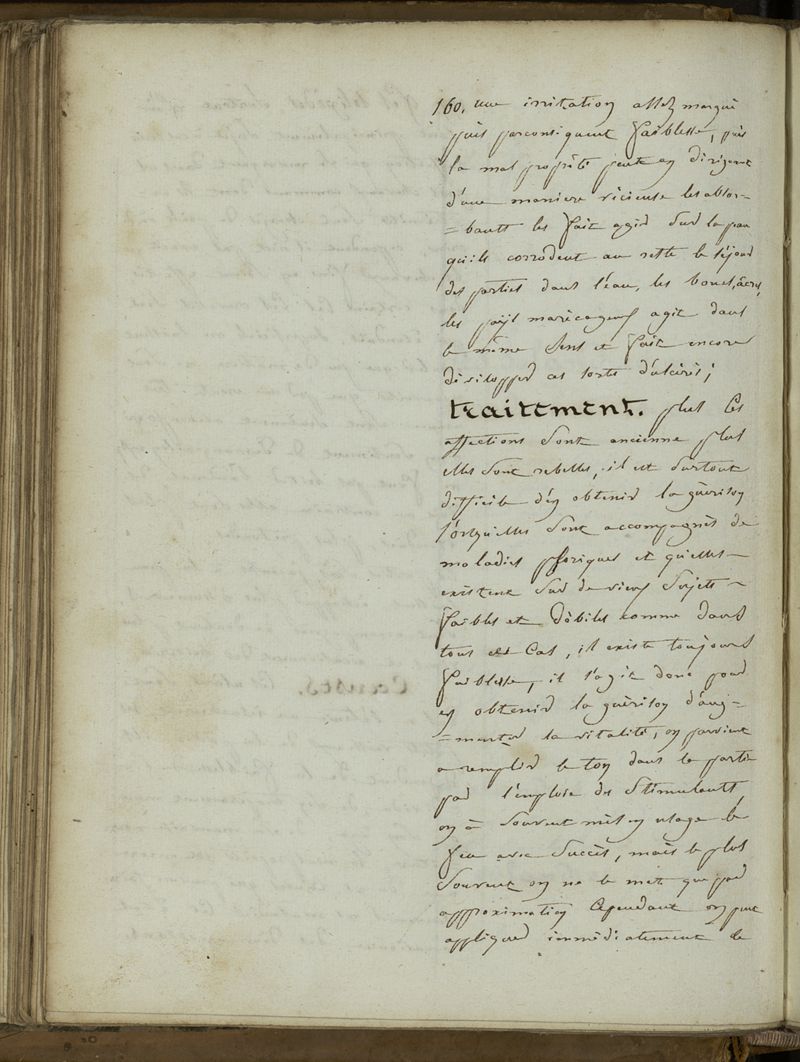 160. une irritation assez marqué
puis parconsiquent faiblesse, puis
la mal propreté peut en dirigeant
d'une maniere vicieuse les absor-
=bants les fait agir sur la peau
qu'ils corrodent au reste le séjour
des parties dans l'eau, les boues, âcres,
les païs marécageux agit dans
le même sens et fait encore
développer ces sorte d'ulcères;
traitement. plus Ces
affections sont ancienne plus
elles sont rebelles, il est surtout
difficile d'en obtenir la guèrison
lorsqu'elles sont accompagnès de
maladies psoriques et qu'elles
existent sur de vieux sujets
faibles et dèbiles comme dans
tous ces Cas, il existe toujours
faiblesse, il s'agit donc pour
en obtenir la guèrison d'aug-
=menter la vitalité, on parvient
a remplir le ton dans la partie
par l'emploie des Stimulants
on à souvent mis en usage le
feu avec succès, mais le plus
souvent on ne le met que par
approximation Cependant on peut
appliquer immèdiatement le
Causes.